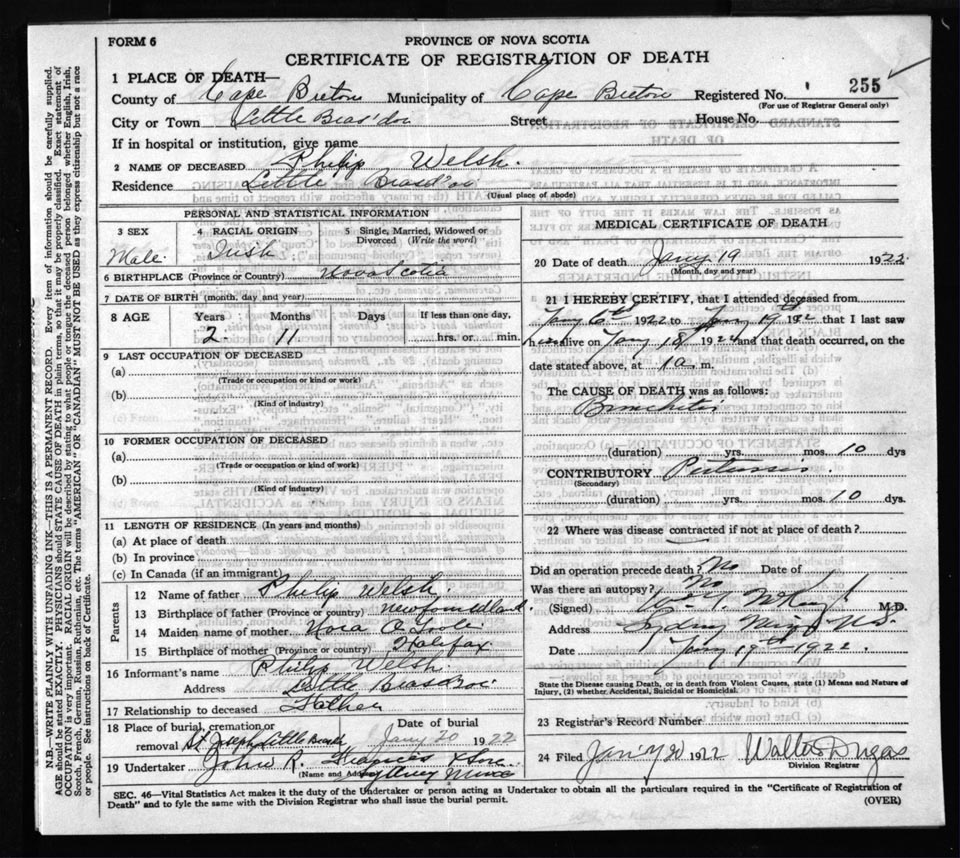 FORM 6
PROVINCE OF NOVA SCOTIA
CERTIFICATE OF REGISTRATION OF DEATH
1 PLACE OF DEATH—
County of Cape Breton Municipality of Cape Breton Registered No. 255
(For use of Registrar General only)
City or Town Little Street House No.
If in hospital or institution, give name
2 NAME OF DECEASED Philip Welsh.
Residence Little
(Usual place of abode)
PERSONAL AND STATISTICAL INFORMATION
3 SEX 4 RACIAL ORIGIN 5 Single, Married, Widowed or
Divorced (Write the word)
Male. Irish
6 BIRTHPLACE (Province or Country) Nova Scotia
7 DATE OF BIRTH (month, day and year)
8 AGE Years Months Days If less than one day,
2 11 hrs. or min.
9 LAST OCCUPATION OF DECEASED
(a)
(Trade or occupation or kind or work)
(b)
(Kind of industry)
10 FORMER OCCUPATION OF DECEASED
(a)
(Trade or occupation or kind or work)
(b)
(Kind of Industry)
11 LENGTH OF RESIDENCE (In years and months)
(a) At place of death
(b) In province
(c) In Canada (if an immigrant)
Parents
12 Name of father Philip Welsh.
13 Birthplace of father (Province or country) Newfoundland
14 Maiden name of mother Nora O'Toole
15 Birthplace of mother (Province or country) Halifax
16 Informant's name Philip Welsh.
Address Little
17 Relationship to deceased Father
18 Place of burial, cremation or removal St Joseph Little Date of burial Jany 20 1922
19 Undertaker John R. & Son
(Name and Address) Sydney Mines
MEDICAL CERTIFICATE OF DEATH
20 Date of death Jany 19 1922
(Month, day and year)
21 I HEREBY CERTIFY, that I attended deceased from
Jany 1922 to Jany 192 that I last saw
him alive on Jany 18 192 and that death occurred, on
date stated above, at m.
The CAUSE OF DEATH was as follows:
Bronchitis
(duration) yrs. mos. 10 dys
CONTRIBUTORY Pertussis
(Secondary)
(duration) yrs. mos. 10 dys.
22 Where was disease contracted if not at place of death?
Did an operation precede death? No Date of
Was there an autopsy? No
(Signed) M.D.
Address Sydney Mines N.S.
Date Jany 19th 1922.
State the Disease causing Death, or in death from Violent Causes, state (1) Means and Nature of
Injury, (2) whether Accidental, Suicidal or Homicidal.
23 Registrar's Record Number
24 Filed 20 1922 Walter Dugas
Division Registrar
SEC. 46—Vital Statistics Act makes it the duty of the Undertaker or person acting as Undertaker to obtain all the particulars required in the "Certificate of Registration of
Death" and to fyle the same with the Division Registrar who shall issue the burial permit. (OVER)
N.B.—WRITE PLAINLY WITH UNFADING INK—THIS IS A PERMANENT RECORD. Every item of information should be carefully supplied.
AGE should be stated EXACTLY. PHYSICIANS should STATE CAUSE OF DEATH in plain terms, so that it may be properly classified. Exact statement of
OCCUPATION is very important. RACIAL ORIGIN will be described by stating to what people or tongue the deceased person belonged whether English, Irish,
Scotch, French, German, Russian, Ruthenian, etc. The terms "AMERICAN" OR "CANADIAN" MUST NOT BE USED as they express citizenship but not a race
or people. See instructions on back of Certificate.